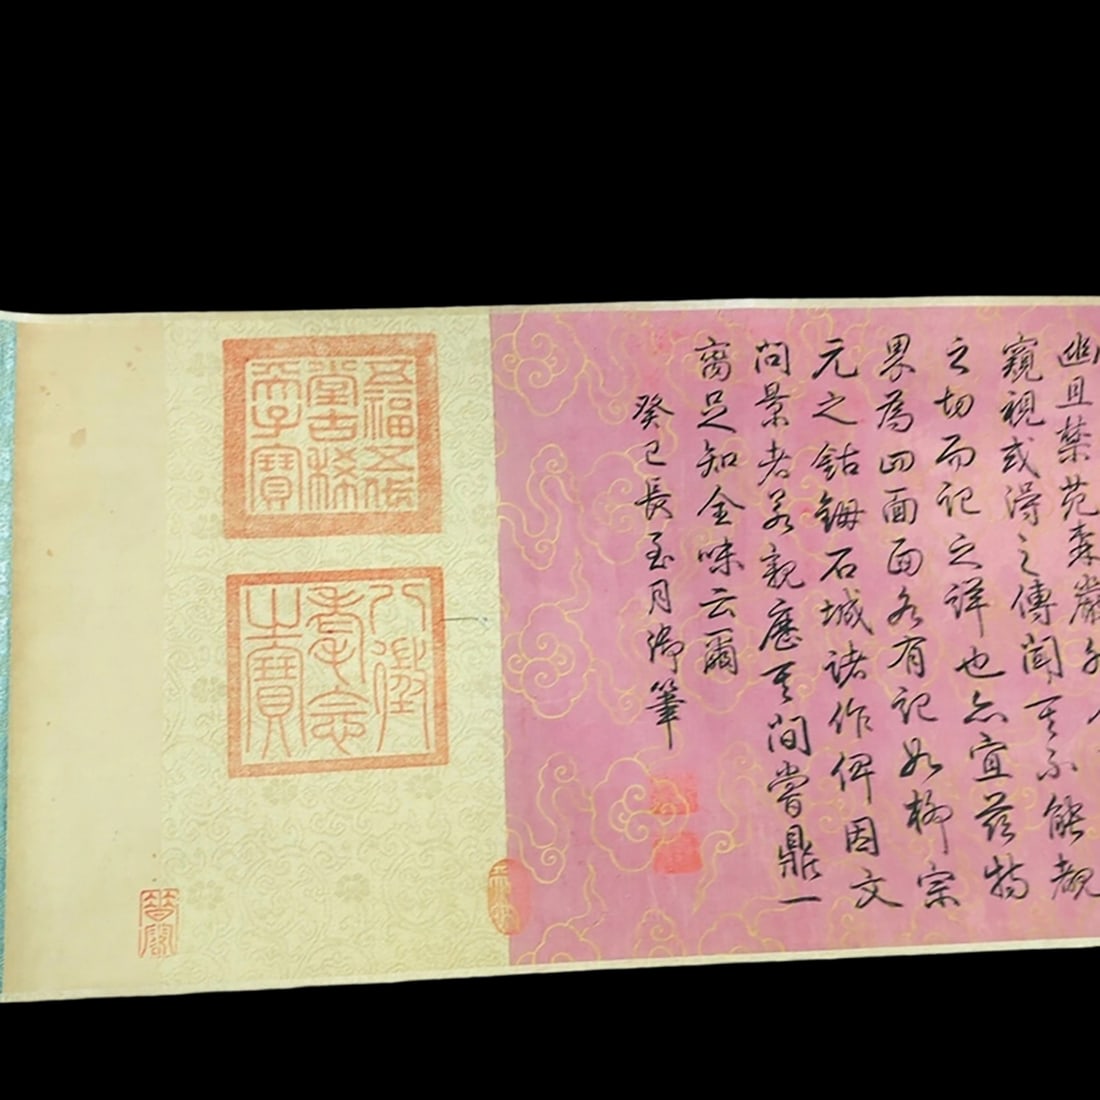 幽且禁苑森嚴外人
窺視或得之傳聞其不能覩
之切而記之詳也亦宜茲特
界為四面面各有記如柳宗
元之鈷鉧石城諸作俾因文
問景者若親歷其間嘗鼎一
臠足知全味云爾
癸巳長至月御筆
五福五代
堂古稀
天子寶
八徵
耄念
之寶